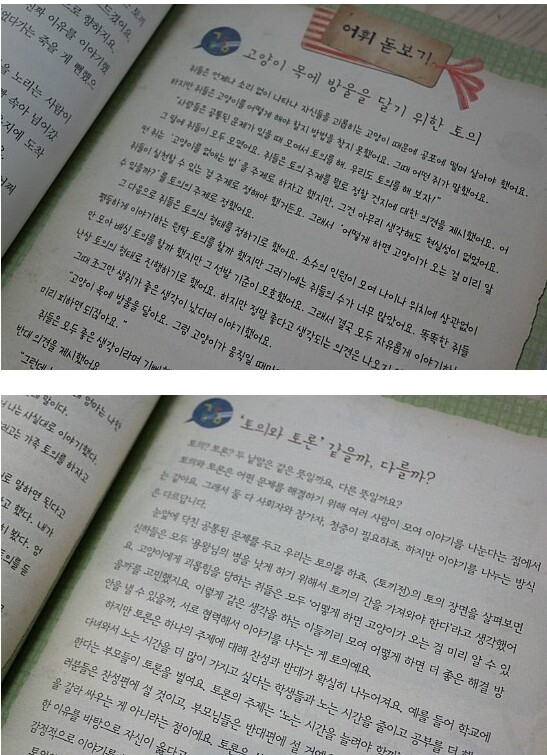 어휘 돋보기
고양이 목에 방울을 달기 위한 토의
쥐들은 언제나 소리 없이 나타나 자신들을 괴롭히는 고양이 때문에 공포에 떨며 살아야 했어요.
하지만 쥐들은 고양이를 어떻게 해야 할지 방법을 찾지 못했어요. 그때 어떤 쥐가 말했어요.
"사람들은 공통된 문제가 있을 때 모여서 토의를 해. 우리도 토의를 해 보자!"
그 말에 쥐들이 모두 모였어요. 쥐들은 토의 주제를 뭘로 정할 건지에 대한 의견을 제시했어요. 어
떤 쥐는 '고양이를 없애는 법'을 주제로 하자고 했지만, 그건 아무리 생각해도 현실성이 없었어요.
쥐들이 실천할 수 있는 걸 주제로 정해야 했거든요. 그래서 '어떻게 하면 고양이가 오는 걸 미리 알
수 있을까?'를 토의 주제로 정했어요.
그 다음으로 쥐들은 토의의 형태를 정하기로 했어요. 소수의 인원이 모여 나이나 위치에 상관없이
평등하게 이야기하는 원탁 토의를 할까 했지만 그러기에는 쥐들의 수가 너무 많았어요. 똑똑한 쥐들
만 모아 배심 토의를 할까 했지만 그 선발 기준이 모호했어요. 그래서 결국 모두 자유롭게 이야기하는
난상 토의의 형태로 진행하기로 했어요. 하지만 정말 좋다고 생각되는 의견은 나오지
그때 조그만 생쥐가 좋은 생각이 났다며 이야기했어요.
"고양이 목에 방울을 달아요. 그럼 고양이가 움직일 때마다
미리 피하면 되잖아요."
쥐들은 모두 좋은 생각이라며
반대 의견을 제시했어요.
"그런데
'토의와 토론' 같을까, 다를까?
토의? 토론? 두 낱말은 같은 뜻일까요, 다른 뜻일까요?
토의와 토론은 어떤 문제를 해결하기 위해 여러 사람이 모여 이야기를 나눈다는 점에서
는 같아요. 그래서 둘 다 사회자와 참가자, 청중이 필요하죠. 하지만 이야기를 나누는 방식
은 다르답니다.
눈앞에 닥친 공통된 문제를 두고 우리는 토의를 하죠. 〈토끼전〉의 토의 장면을 살펴보면
신하들은 모두 용왕님의 병을 낫게 하기 위해서 토끼의 간을 가져와야 한다'라고 생각했어
요. 고양이에게 괴롭힘을 당하는 쥐들은 모두 '어떻게 하면 고양이가 오는 걸 미리 알 수 있
을까'를 고민했지요. 이렇게 같은 생각을 하는 이들끼리 모여 어떻게 하면 더 좋은 해결 방
안을 낼 수 있을까, 서로 협력해서 이야기를 나누는 게 토의예요.
하지만 토론은 하나의 주제에 대해 찬성과 반대가 확실히 나누어져요. 예를 들어 학교에
다녀와서 노는 시간을 더 많이 가지고 싶다는 학생들과 노는 시간을 줄이고 공부를 더 해
한다는 부모들이 토론을 벌여요. 토론의 주제는 '노는 시간을 늘려야
러분들은 찬성편에 설 것이고, 부모님들은 반대편에 설
을 갈라 싸우는 게 아니라는 점이에요. 토론은
한 이유를 바탕으로 자신이 옳다고
감정적으로 이야기